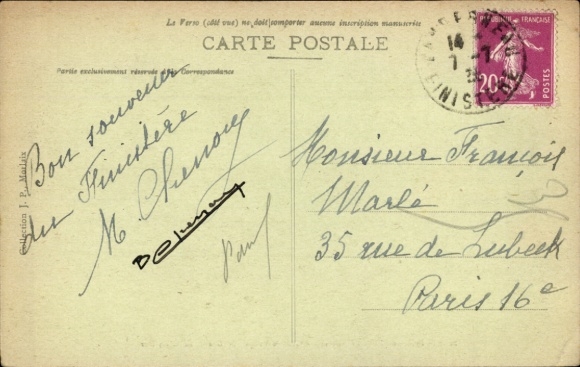 Le Verso (côté vue) ne doit comporter aucune inscription manuscrite
CARTE POSTALE
Partie exclusivement réservée à la Correspondance
14
7 -7
FINISTERE
FRANÇAISE
20c
POSTES
Collection J. P., Morlaix
Bon souvenir
du Finistère
M. Chenou
Paul
Monsieur François
Marlé
35 rue de Lubeck
Paris 16e